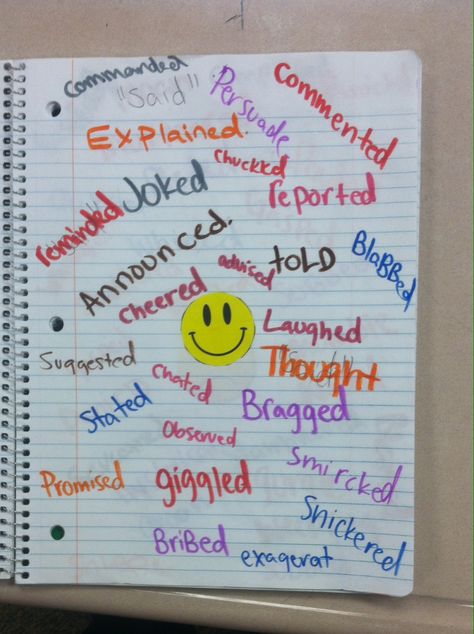 Commanded
"Said"
Persuade
Commented
Explained.
Chuckked
reminded
Joked
reported
Announced.
advised
told
BlaBBed
cheered
Laughed
Suggested
chated
Thought
Stated
Bragged
Observed
Smircked
Promised
giggled
Snickered
BriBed
exagerat